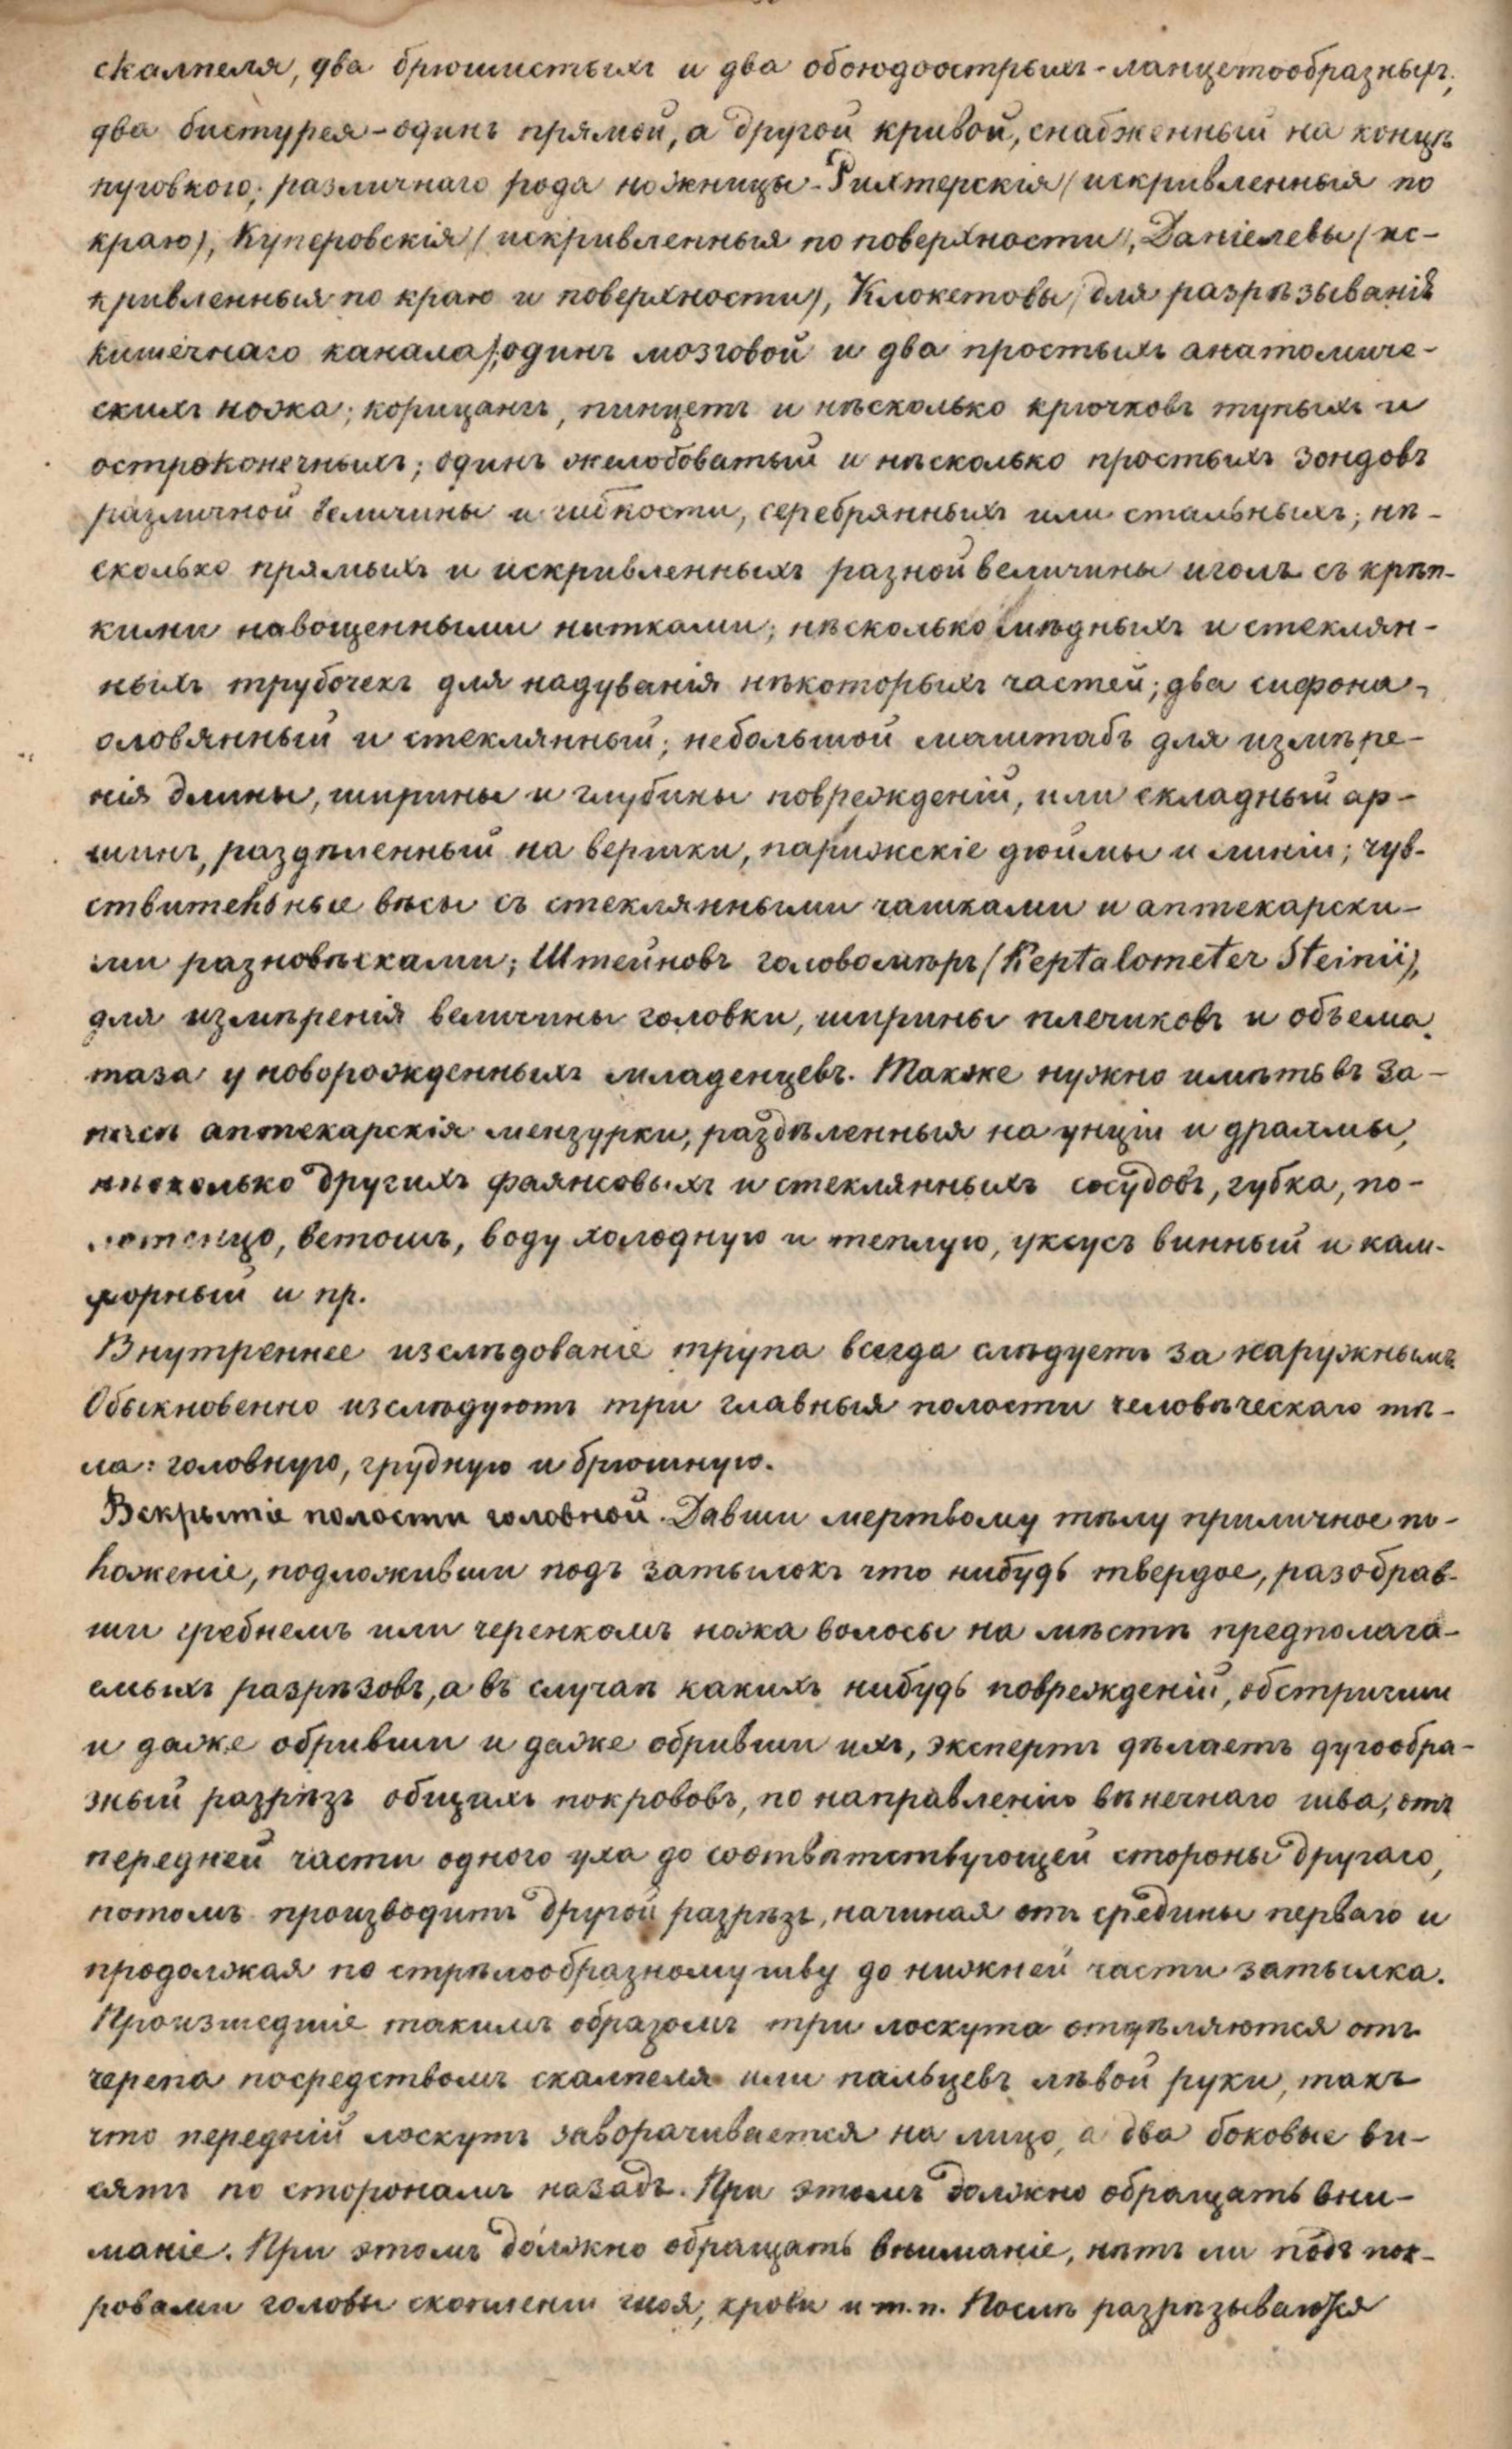 скалпеля, два брюшистыхъ и два обоюдоострыхъ-ланцетообразныхъ;
два бистурея-одинъ прямой, а другой кривой, снабженный на концѣ
пуговкою; различнаго рода ножницы-Рихтерскія (искривленныя по
краю), Куперовскія (искривленныя по поверхности), Даніелевы (ис-
кривленныя по краю и поверхности), Клокетовы (для разрѣзыванія
кишечнаго канала); одинъ мозговой и два простыхъ анатомиче-
скихъ ножа; корнцангъ, пинцетъ и нѣсколько крючковъ тупыхъ и
остроконечныхъ; одинъ желобоватый и нѣсколько простыхъ зондовъ
различной величины и гибкости, серебрянныхъ или стальныхъ; нѣ-
сколько прямыхъ и искривленныхъ разной величины иголъ съ крѣп-
кими навощенными нитками; нѣсколько мѣдныхъ и стеклян-
ныхъ трубочекъ для надуванія нѣкоторыхъ частей; два сифона,
оловянный и стеклянный; небольшой маштабъ для измѣре-
нія длины, ширины и глубины поврежденій, или складный ар-
шинъ, раздѣленный на вершки, парижскіе дюймы и линіи; чув-
ствительные вѣсы съ стеклянными чашками и аптекарски-
ми разновѣсками; Штейновъ головомѣръ (Keptalometer Steinii),
для измѣренія величины головки, ширины плечиковъ и объема
таза у новорожденныхъ младенцевъ. Также нужно имѣть въ за-
пасѣ аптекарскія мензурки, раздѣленныя на унціи и драхмы,
нѣсколько другихъ фаянсовыхъ и стеклянныхъ сосудовъ, губка, по-
лотенцо, ветошь, воду холодную и теплую, уксусъ винный и кам-
форный и пр.
Внутреннее изслѣдованіе трупа всегда слѣдуетъ за наружнымъ
Обыкновенно изслѣдуютъ три главныя полости человѣческаго тѣ-
ла: головную, грудную и брюшную.
Вскрытіе полости головной. Давши мертвому тѣлу приличное по-
ложеніе, подложивши подъ затылокъ что нибудь твердое, разобрав-
ши гребнемъ или черенкомъ ножа волосы на мѣстѣ предполага-
емыхъ разрѣзовъ, а въ случаѣ какихъ нибудь поврежденій, обстригши
и даже обривши и даже обривши ихъ, экспертъ дѣлаетъ дугообра-
зный разрѣзъ общихъ покрововъ, по направленію вѣнечнаго шва, отъ
передней части одного уха до соотвѣтствующей стороны другаго,
потомъ производитъ другой разрѣзъ, начиная отъ средины перваго и
продолжая по стрѣлообразному шву до нижней части затылка.
Происшедшіе такимъ образомъ три лоскута отдѣляются отъ
черепа посредствомъ скалпеля или пальцевъ лѣвой руки, такъ
что передній лоскутъ заворачивается на лицо, а два боковые ви-
сятъ по сторонамъ назадъ. При этомъ должно обращать вни-
маніе. При этомъ должно обращать вниманіе, нѣтъ ли подъ пок-
ровами головы скопленій гноя, крови и т.п. Послѣ разрѣзываются